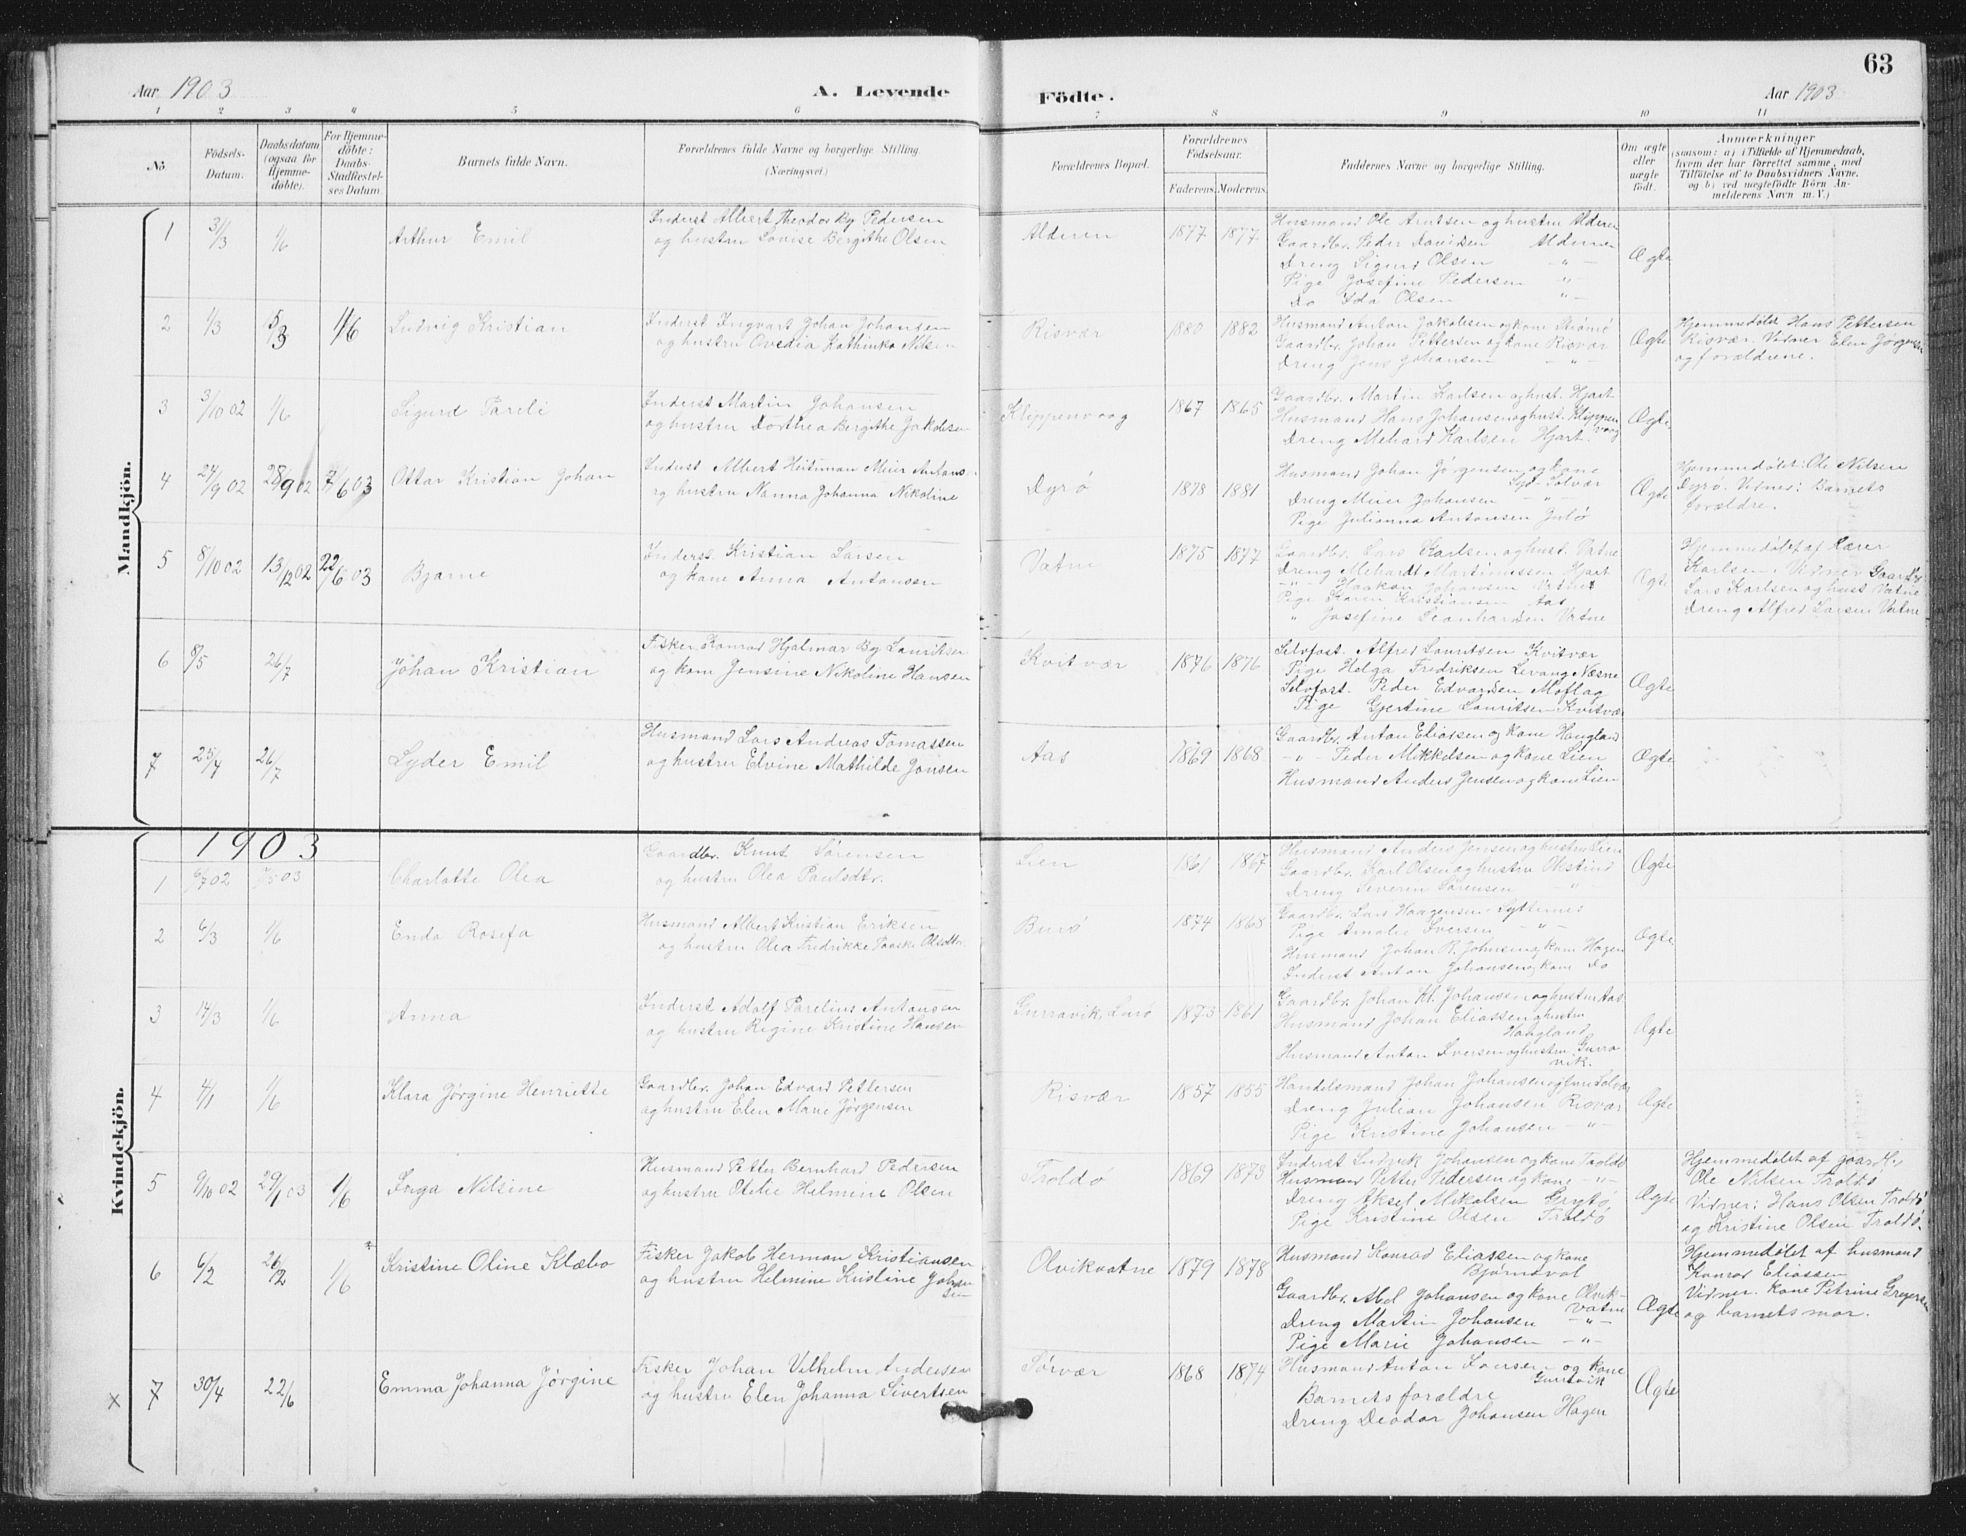 63
Aar 1903 A. Levende Födte. Aar 1903
1 2 3 4 5 6 7 8 9 10 11
No. Födsels-Datum. Daabsdatum (ogsaa for Hjemmedøbte). For Hjemmedöbte: Daabs-Stadfæstelses Datum Barnets fulde Navn. Forældrenes fulde Navne og borgerlige Stilling (Næringsvei) Forældrenes Bopæl. Forældrenes Födselsaar. Faderens. Moderens. Faddernes Navne og borgerlige Stilling. Om ægte eller uægte födt. Anmærkninger
(saasom: a) i Tilfælde af Hjemmedaab, hvem der har forrettet samme, med Tilföielse af to Daabsvidners Navne, og b) ved uægtefödte Börn Anmelderens Navn m. V.)
Mandkjön.
1 31/3 1/6 Arthur Emil Inderst Albert Theodor By Pedersen Alderen 1877 1877 Husmand Ole Arntsen og hustru Alderen Ægte
og hustru Lovise Bergithe Olsen Gaardbr. Peder Davidsen Alderen
Dreng Sigurd Olsen — " —
Pige Josefine Pedersen " —
Do Ida Olsen " —
2 1/3 5/3 1/6 Ludvig Kristian Inderst Ingvart Johan Johansen Risvær 1880 1882 Husmand Anton Jakobsen og kone Ægte Hjemmedøbt Hans Pettersen
og hustru Ovedia Kathinka Nilsen Gaardbr. Johan Pettersen og kone Risvær Risvær. Vidner Elen Jørgensen
Dreng Jens Johansen — " — og forældrene.
3 3/10 02 1/6 Sigurd Pareli Inderst Martin Johansen Klippenvaag 1867 1865 Gaardbr. Martin Karlsen og hust. Hjart Ægte
og hustru Dorthea Bergithe Jakobsen Husmand Hans Johansen og hust. Klippenvaag
Dreng Mehard Karlsen Hjart.
4 24/9 02 28/9 02 /6 03 Ottar Kristian Johan Inderst Albert Hitsman Meier Antons. Dyrø 1878 1881 Husmand Johan Jørgensen og kone Ægte Hjemmedøbt: Ole Nilsen
og hustru Nanna Johanna Nikoline Syd-Solvær Dyrø. Vidner: Barnets
Dreng Meier Johansen — " — forældre.
Pige Julianna Antonsen
5 8/10 02 13/12 02 22/6 03 Bjarne Inderst Kristian Larsen Vatne 1875 1877 Gaardbr. Lars Karlsen og hust. Vatne Ægte Hjemmedøbt af Lærer
og kone Anna Antonsen Dreng Mehardt Martinussen Hjart Karlsen. Vidner Gaardbr.
— " — Haakon Johansen Vatnet Lars Karlsen og hust Vatne
Pige Karen Kristiansen Aas Dreng Alfred Larsen Vatne
" Josefine Leonhardsen Vatne
6 8/5 26/7 Johan Kristian Fisker Konrad Hjalmar By Lauritsen Kvitvær 1876 1876 Selvfost. Alfred Lauritsen Kvitvær Ægte
og kone Jensine Nikoline Hansen Pige Helga Fredriksen Levang Næsne
Selvfost. Peder Edvardsen Moflag
Pige Gjertine Lauritsen Kvitvær
7 25/4 26/7 Lyder Emil Husmand Lars Andreas Tomassen Aas 1869 1868 Gaardbr. Anton Eliassen og kone Haugland Ægte
og hustru Elvine Mathilde Jonsen — " — Peder Mikkelsen og kone Lien
Husmand Anders Jensen og kone Lien
1903
Kvindekjön.
1 6/7 02 03 Charlotte Olea Gaardbr. Knut Sørensen Lien 1861 1867 Husmand Anders Jensen og hustru Lien Ægte
og hustru Olea Paulsdtr. Gaardbr. Karl Olsen og hustru Olvstind
Dreng Severin Sørensen — " —
2 6/3 1/6 Enda Rosefa Husmand Albert Kristian Eriksen Burø 1874 1868 Gaardbr. Lars Haagensen Sytternes Ægte
og hustru Olea Fredrikke Paaske Olsdtr. Pige Amalie Iversen — " —
Husmand Johan Johnsen og kone Hagen
Inderst Anton Johansen og kone Do
3 14/3 1/6 Anna Inderst Adolf Parelius Antonsen Gurravik, Lurø 1873 1861 Gaardbr. Johan Kl. Johansen og hustru Aas Ægte
og hustru Regine Kristine Hansen Husmand Johan Eliassen og hustru
Haugland
Husmand Anton Iversen og hustru Gurravik.
4 4/1 1/6 Klara Jørgine Henriette Gaardbr. Johan Edvard Pettersen Risvær 1857 1855 Handelsmand Johan Johansen og hust Solvær Ægte
og hustru Elen Marie Jørgensen Dreng Julian Johansen Risvær
Pige Kristine Johansen — " —
5 9/10 02 29/1 03 1/6 Inga Nilsine Husmand Petter Bernhard Pedersen Troldø 1869 1873 Inderst Ludvik Johansen og kone Troldø Ægte Hjemmedøbt af gaardbr.
og hustru Otelie Helmine Olsen Husmand Petter Pedersen og kone — " — Ole Nilsen Troldø
Dreng Aksel Mikalsen Grytø Vidner: Hans Olsen Troldø
Pige Kristine Olsen Troldø og Kristine Olsen Troldø.
6 6/2 26/2 1/6 Kristine Oline Klæbo Fisker Jakob Herman Kristiansen Olvikvatne 1879 1878 Husmand Konrad Eliassen og kone Ægte Hjemmedøbt af husmand
og hustru Helmine Kristine Johansen Bjørnsvol Konrad Eliassen
Gaardbr. Abel Johansen og kone Olvikvatne Vidner. Kone Petrine Gregersen
Dreng Martin Johansen — " — og barnets mor.
Pige Marie Johansen — " —
x 7 30/4 22/6 Emma Johanna Jørgine Fisker Johan Vilhelm Andersen Sørvær 1868 1874 Husmand Anton Iversen og kone Ægte
og hustru Elen Johanna Sivertsen Gurravik
Barnets forældre
Dreng Deodor Johansen Hagen